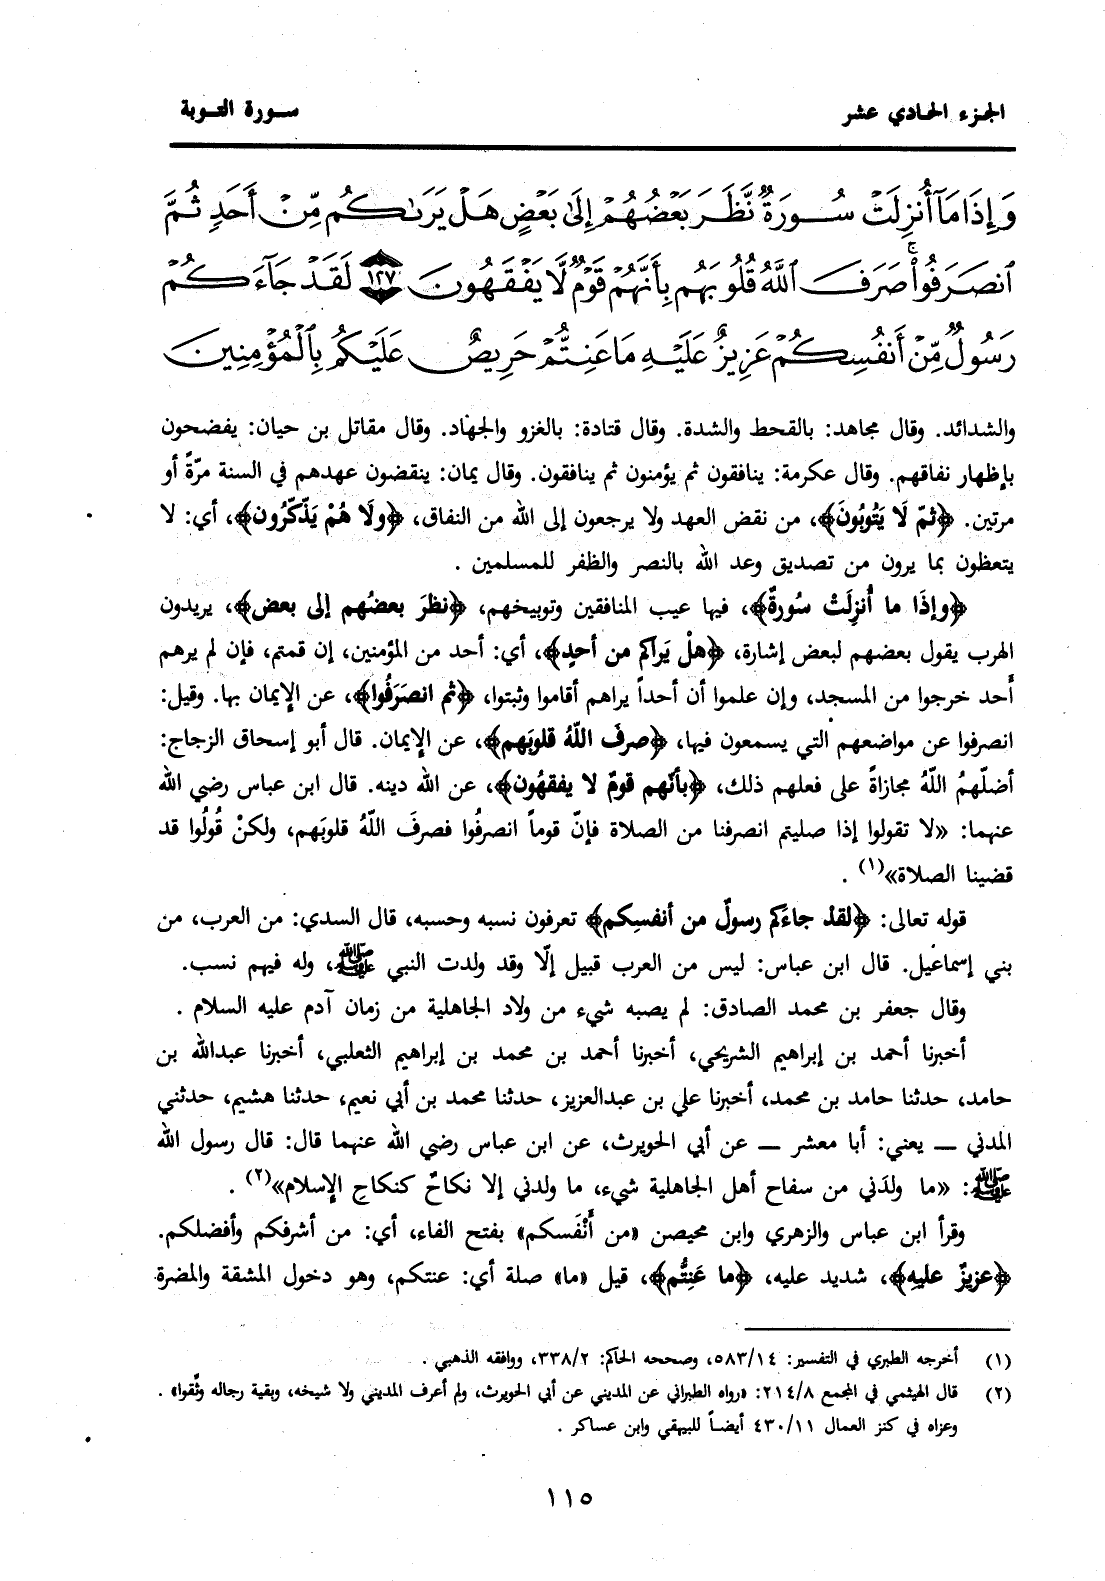 الجزء الحادي عشر
سورة التوبة
وَإِذَا مَآ أُنزِلَتْ سُورَةٌ نَّظَرَ بَعْضُهُمْ إِلَىٰ بَعْضٍ هَلْ يَرَىٰكُم مِّنْ أَحَدٍ ثُمَّ
ٱنصَرَفُوا۟ ۚ صَرَفَ ٱللَّهُ قُلُوبَهُم بِأَنَّهُمْ قَوْمٌ لَّا يَفْقَهُونَ ١٢٧ لَقَدْ جَآءَكُمْ
رَسُولٌ مِّنْ أَنفُسِكُمْ عَزِيزٌ عَلَيْهِ مَا عَنِتُّمْ حَرِيصٌ عَلَيْكُم بِٱلْمُؤْمِنِينَ
والشدائد. وقال مجاهد: بالقحط والشدة. وقال قتادة: بالغزو والجهاد. وقال مقاتل بن حيان: يفضحون
بإظهار نفاقهم. وقال عكرمة: ينافقون ثم يؤمنون ثم ينافقون. وقال يمان: ينقضون عهدهم في السنة مرّةً أو
مرتين. ﴿ثمّ لَا يَتُوبُونَ﴾، من نقض العهد ولا يرجعون إلى الله من النفاق، ﴿ولَا هُمْ يَذّكّرُون﴾، أي: لا
يتعظون بما يرون من تصديق وعد الله بالنصر والظفر للمسلمين .
﴿وإذَا ما أُنزِلَتْ سُورةٌ﴾، فيها عيب المنافقين وتوبيخهم، ﴿نظرَ بعضُهم إلى بعض﴾، يريدون
الهرب يقول بعضهم لبعض إشارة، ﴿هلْ يَراكم من أحدٍ﴾، أي: أحد من المؤمنين، إن قمتم، فإن لم يرهم
أحد خرجوا من المسجد، وإن علموا أن أحداً يراهم أقاموا وثبتوا، ﴿ثم انصَرَفُوا﴾، عن الإيمان بها. وقيل:
انصرفوا عن مواضعهم التي يسمعون فيها، ﴿صرفَ اللّهُ قلوبَهم﴾، عن الإيمان. قال أبو إسحاق الزجاج:
أضلّهمُ اللّهُ مجازاةً على فعلهم ذلك، ﴿بأنّهم قومٌ لا يفقهُون﴾، عن الله دينه. قال ابن عباس رضي الله
عنهما: «لا تقولوا إذا صليتم انصرفنا من الصلاة فإنّ قوماً انصرفُوا فصرفَ اللّهُ قلوبَهم، ولكنْ قُولُوا قد
قضينا الصلاة»(١) .
قوله تعالى: ﴿لقدْ جاءَكم رسولٌ من أنفسِكم﴾ تعرفون نسبه وحسبه، قال السدي: من العرب، من
بني إسماعيل. قال ابن عباس: ليس من العرب قبيل إلّا وقد ولدت النبي ﷺ، وله فيهم نسب.
وقال جعفر بن محمد الصادق: لم يصبه شيء من ولاد الجاهلية من زمان آدم عليه السلام .
أخبرنا أحمد بن إبراهيم الشريحي، أخبرنا أحمد بن محمد بن إبراهيم الثعلبي، أخبرنا عبدالله بن
حامد، حدثنا حامد بن محمد، أخبرنا علي بن عبدالعزيز، حدثنا محمد بن أبي نعيم، حدثنا هشيم، حدثني
المدني — يعني: أبا معشر — عن أبي الحويرث، عن ابن عباس رضي الله عنهما قال: قال رسول الله
ﷺ: «ما ولدَني من سفاح أهل الجاهلية شيء، ما ولدني إلا نكاحٌ كنكاحِ الإسلام»(٢) .
وقرأ ابن عباس والزهري وابن محيصن «من أَنْفَسكم» بفتح الفاء، أي: من أشرفكم وأفضلكم.
﴿عزيزٌ عليهِ﴾، شديد عليه، ﴿ما عَنِتُّم﴾، قيل «ما» صلة أي: عنتكم، وهو دخول المشقة والمضرة
(١) أخرجه الطبري في التفسير: ٥٨٣/١٤، وصححه الحاكم: ٣٣٨/٢، ووافقه الذهبي .
(٢) قال الهيثمي في المجمع ٢١٤/٨: «رواه الطبراني عن المديني عن أبي الحويرث، ولم أعرف المديني ولا شيخه، وبقية رجاله وثّقوا» .
وعزاه في كنز العمال ٤٣٠/١١ أيضاً للبيهقي وابن عساكر .
١١٥